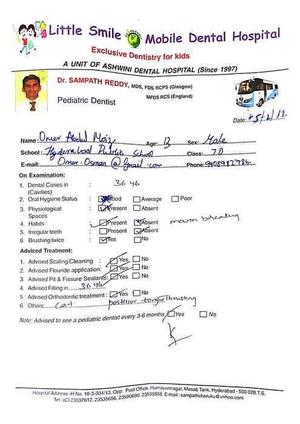 Little Smile Mobile Dental Hospital
Exclusive Dentistry for kids
A UNIT OF ASHWINI DENTAL HOSPITAL (Since 1997)
Dr. SAMPATH REDDY, MDS, FDS RCPS (Glasgow)
MFDS RCS (England)
Pediatric Dentist
Date:
Name: Omer Abdul Age: 13 Sex: Male
School: Hyderabad Public School Class: 7 D
E-mail: Omer.Osman@gmail.com Phone:
On Examination:
1. Dental Caries in (Cavities) : 36 46
2. Oral Hygiene Status : Good Average Poor
3. Physiological Spaces : Present Absent
4. Habits : Present Absent mouth breathing
5. Irregular teeth : Present Absent
6. Brushing twice : Yes No
Adviced Treatment:
1. Advised Scaling/Cleaning : Yes No
2. Advised Flouride application: Yes No
3. Advised Pit & Fissure Sealants: Yes No
4. Advised Filling in 36 46
5. Advised Orthodontic treatment : Yes No
6. Others: posterior tongue thrusting
Note: Advised to see a pediatric dentist every 3-6 months Yes No
Hospital Address: H No. 10-2-304/13, Opp: Post Office, Humayunnagar, Masab Tank, Hyderabad - 500 028.T.S.